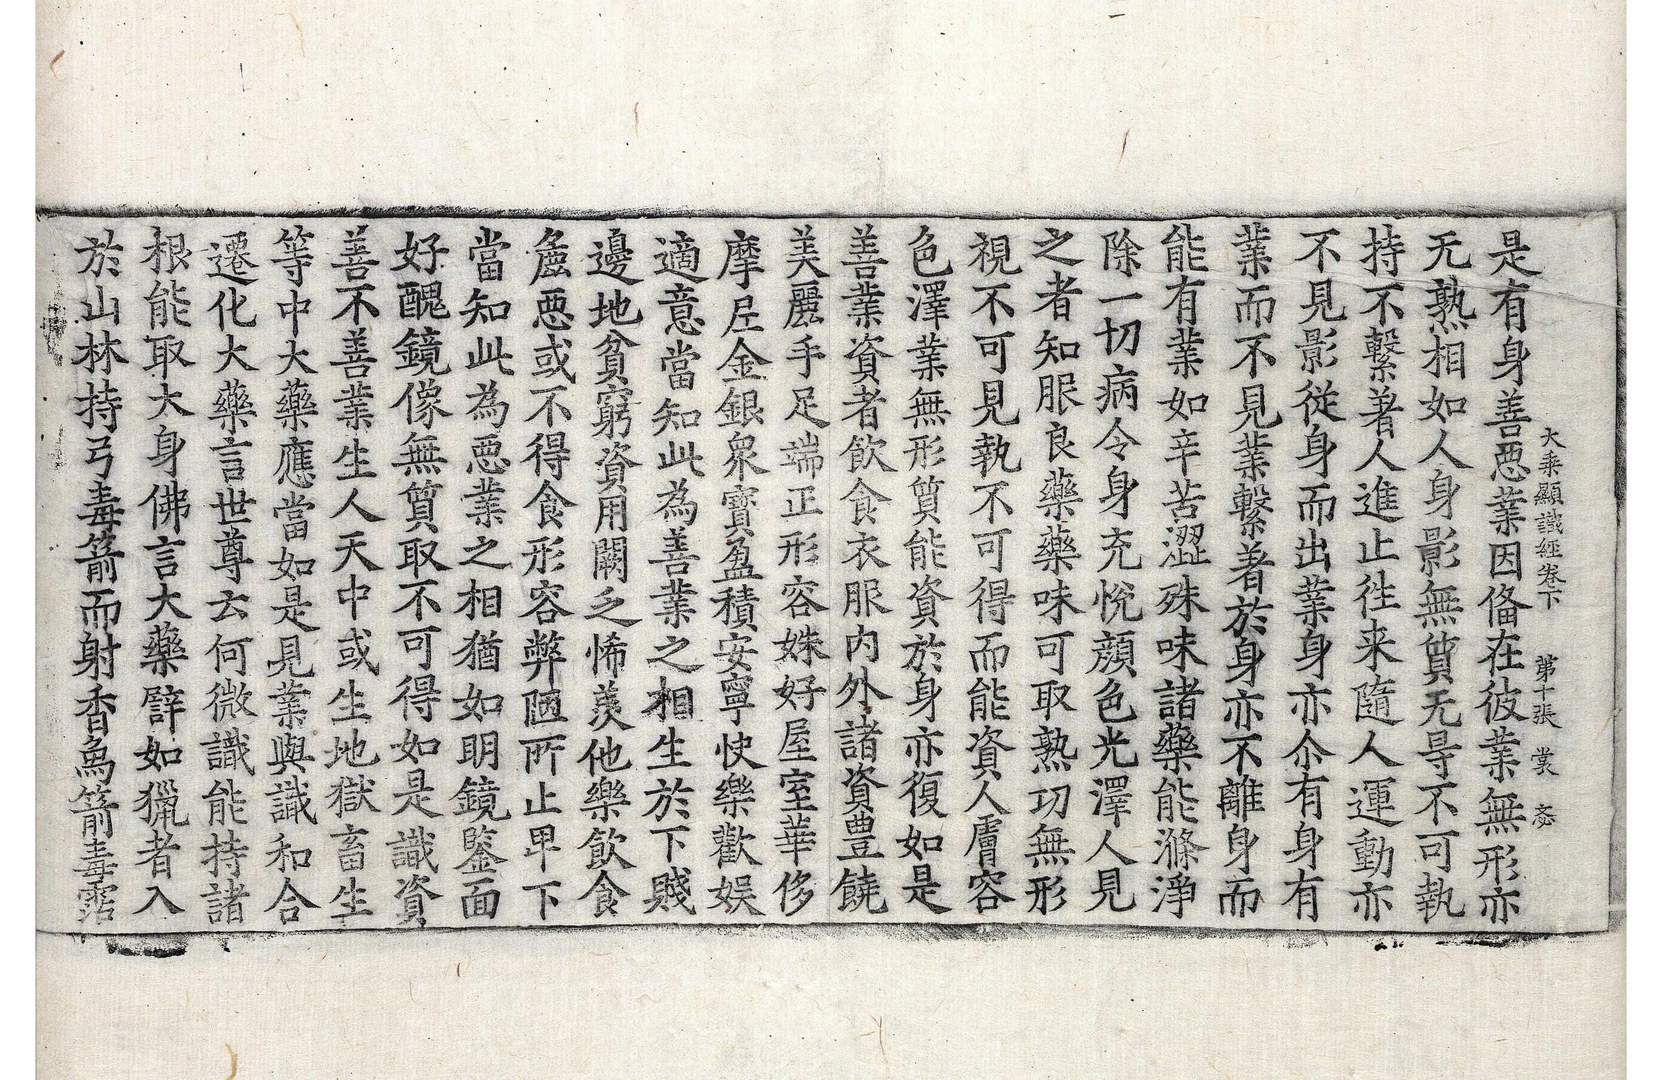 大乘顯識經卷下 第十張 裳
是有身善惡業因俻在彼業無形亦
无熟相如人身影無質无㝵不可執
持不繫著人進止徃来隨人運動亦
不見影從身而出業身亦尒有身有
業而不見業繫著於身亦不離身而
能有業如辛苦澀殊味諸藥能滌淨
除一切病令身充悅顔色光澤人見
之者知服良藥藥味可取熟功無形
視不可見執不可得而能資人膚容
色澤業無形質能資於身亦復如是
善業資者飲食衣服內外諸資豊饒
美麗手足端正形容姝好屋室華侈
摩尼金銀衆寶盈積安寧快樂歡娱
適意當知此為善業之相生於下賤
邊地貧窮資用闕乏悕羨他樂飲食
麁惡或不得食形容弊陋所止甲下
當知此為惡業之相猶如明鏡鑒面
好醜鏡像無質取不可得如是識資
善不善業生人天中或生地獄畜生
等中大藥應當如是見業與識和合
遷化大藥言世尊云何微識能持諸
根能取大身佛言大藥譬如獵者入
於山林持弓毒箭而射香烏箭毒霑